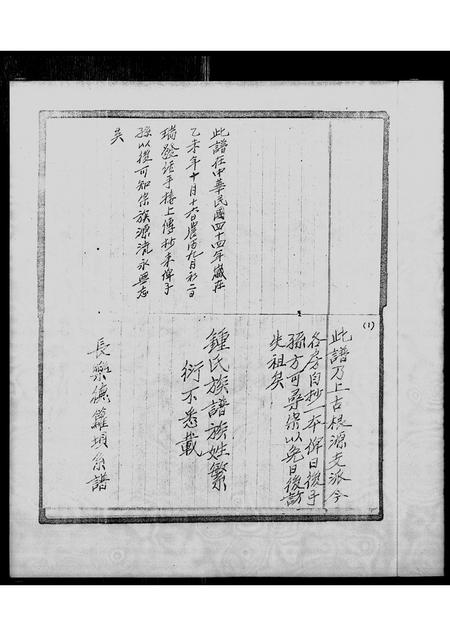 (1)
此譜乃上古根源支派今
各房自抄一本俾日後子
孫方可尋宗以免日後訪
失祖矣
鍾氏族譜族姓繁
衍不悉載
長樂鎮蘿塤系譜
此譜在中華民國四十四年歲在
乙未年十月十六日農历九月初二日
瑞發活手接上傳抄来俾子
孫以後可知宗族源流永無忘
矣